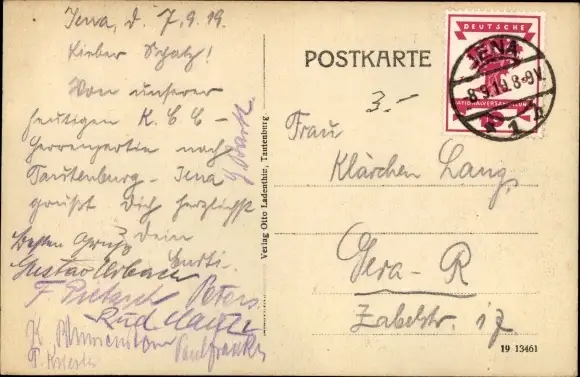 Jena, d. 7.9.19.
Lieber Schatz!
Von unserer
heutigen K. C. C -
Herrenpartie nach
Tautenburg - Jena
grüßt Dich herzlichst
Dein
Curti.
Besten Gruß
Gustav Urban
F. Pietzsch Peters
Rud
Paul Franke
Verlag Otto Ladenthin, Tautenburg.
POSTKARTE
3.-
DEUTSCHE
NATIONALVERSAMMLUNG
JENA
8.9.19.8-9V.
* 1 h
Frau
Klärchen Lang,
Gera - R
Zabelstr. 17
19 13461